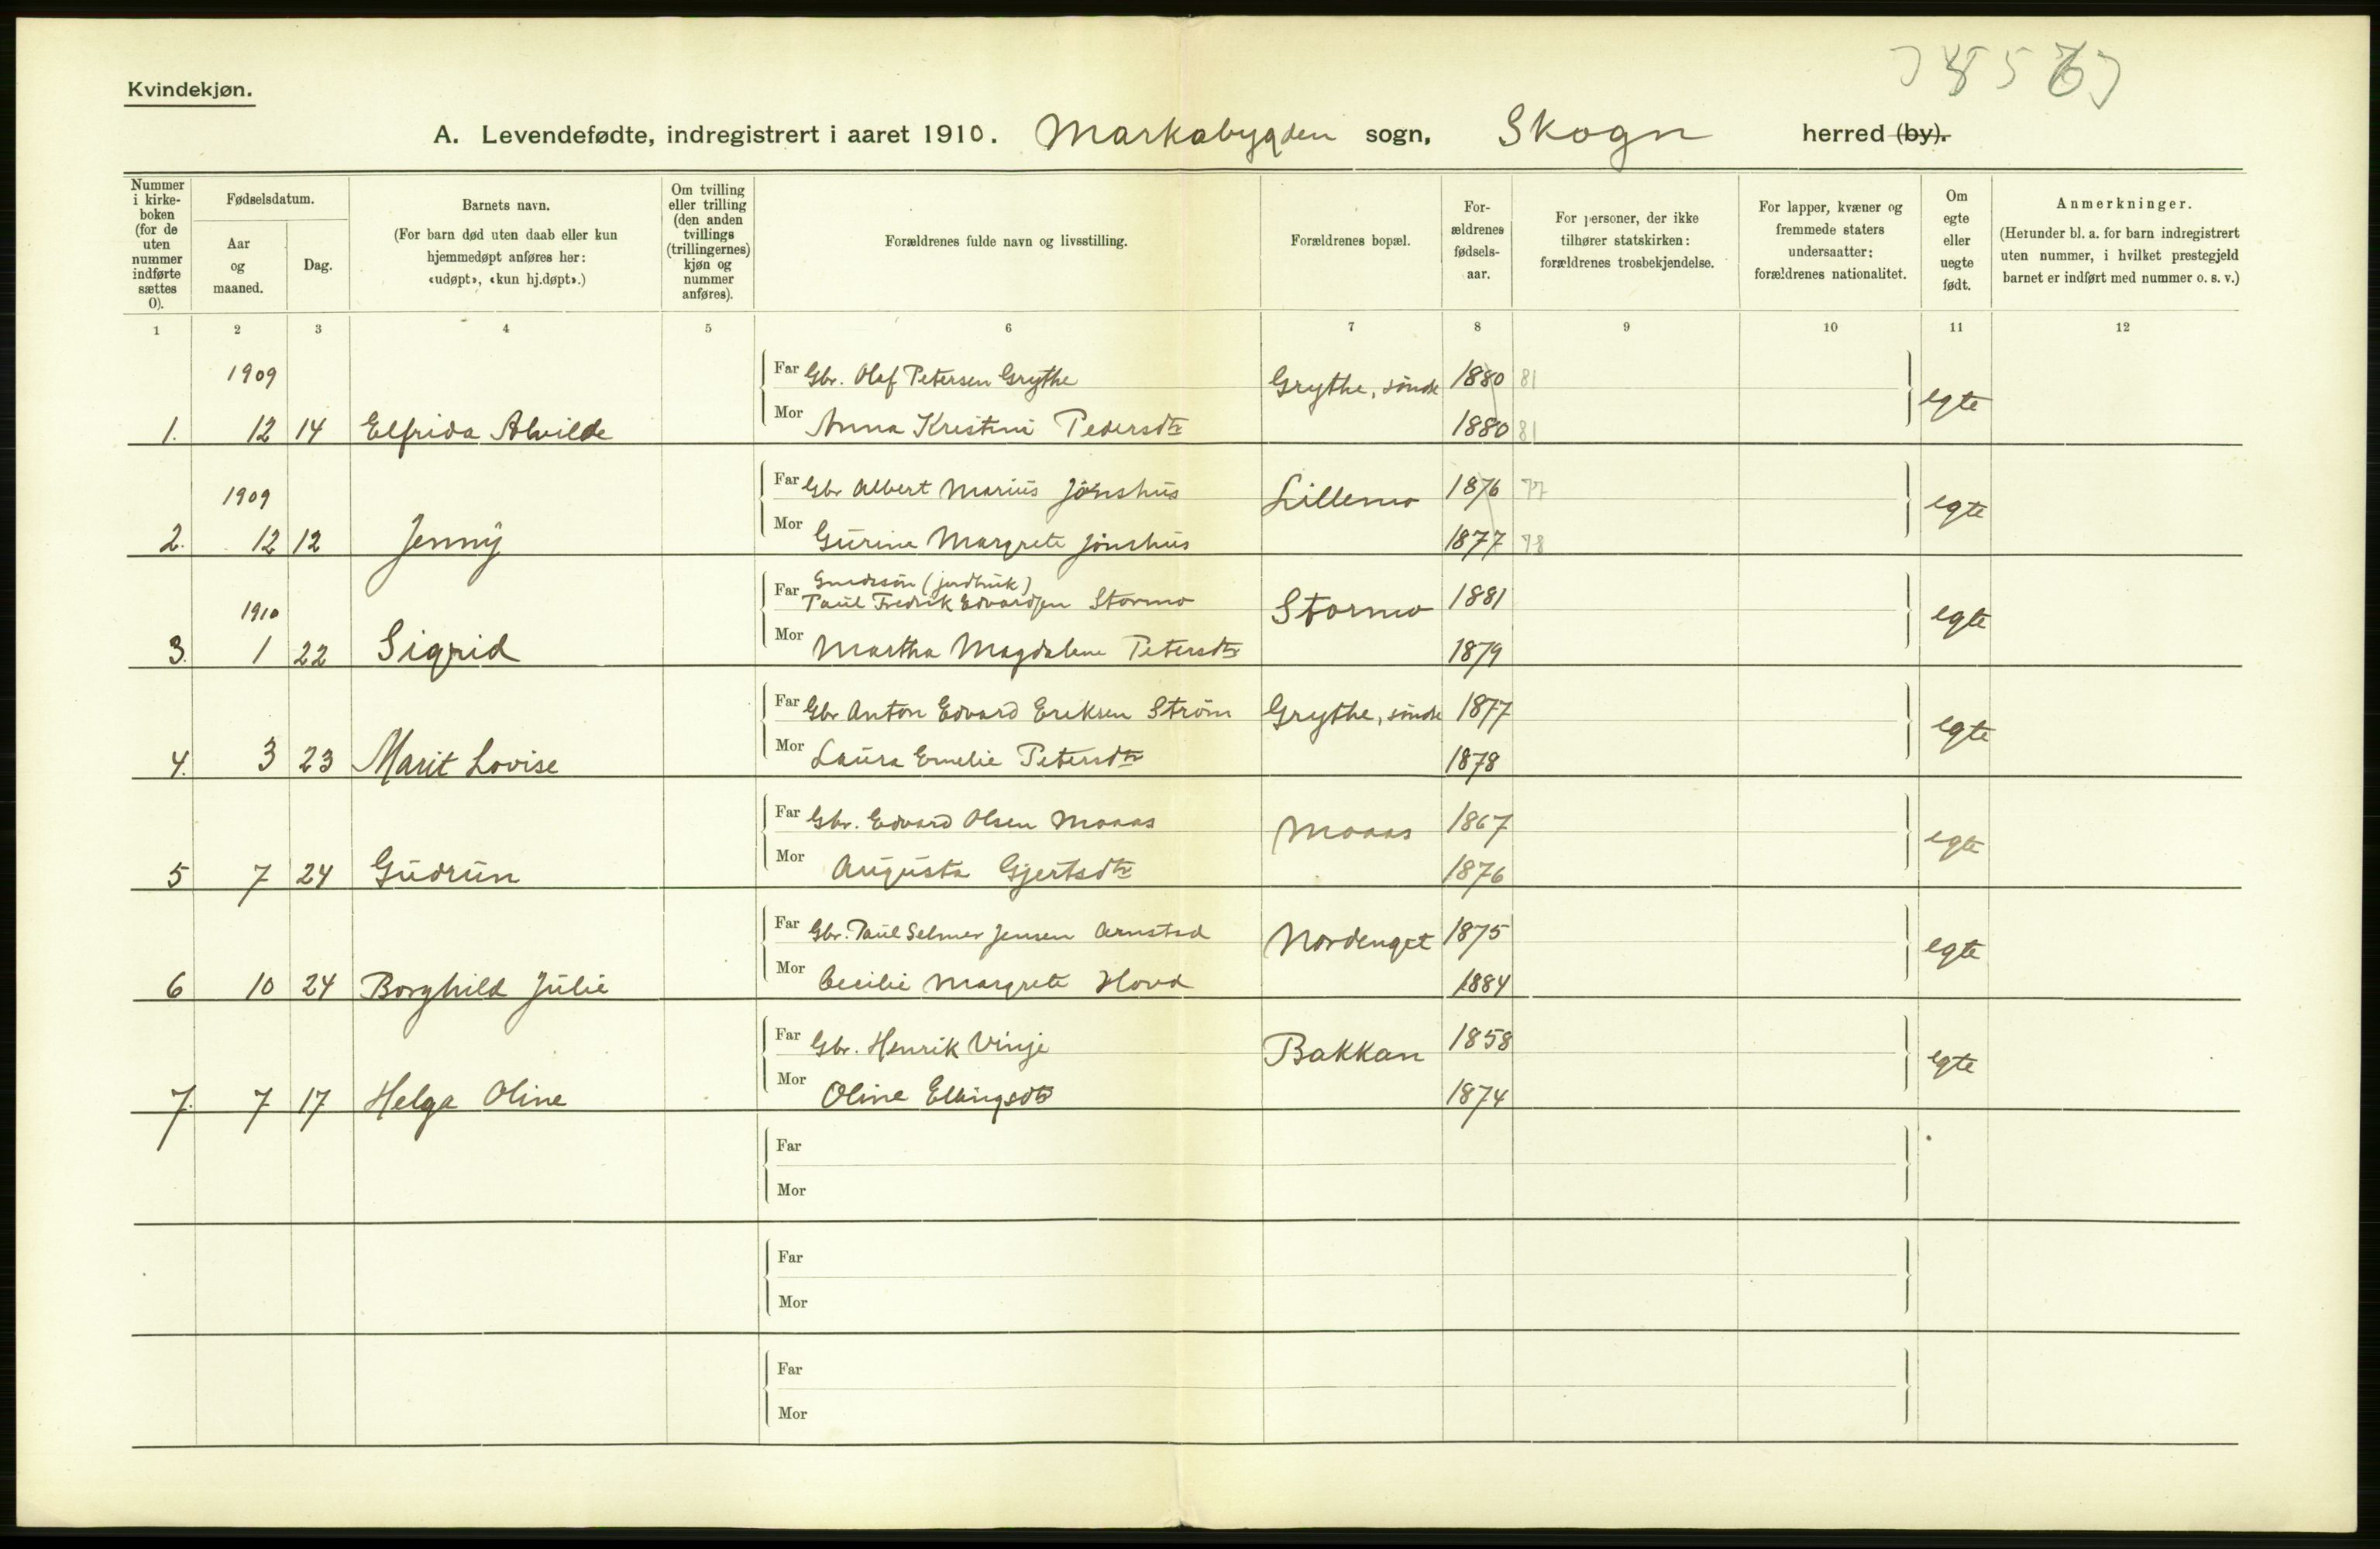 Kvindekjøn.
A. Levendefødte, indregistrert i aaret 1910. Markabygden sogn, Skogn herred (by).
Nummer i kirke-boken (for de uten nummer indførte sættes 0).
Fødselsdatum.
Aar og maaned.
Dag.
Barnets navn.
(For barn død uten daab eller kun hjemmedøpt anføres her: «udøpt», «kun hj.døpt».)
Om tvilling eller trilling (den anden tvillings (trillingernes) kjøn og nummer anføres).
Forældrenes fulde navn og livsstilling.
Forældrenes bopæl.
For-ældrenes fødsels-aar.
For personer, der ikke tilhører statskirken: forældrenes trosbekjendelse.
For lapper, kvæner og fremmede staters undersaatter: forældrenes nationalitet.
Om egte eller uegte født.
Anmerkninger.
(Herunder bl. a. for barn indregistrert uten nummer, i hvilket prestegjeld barnet er indført med nummer o. s. v.)
1 2 3 4 5 6 7 8 9 10 11 12
1909 Far Gbr. Olaf Petersen Grythe Grythe, søndre 1880 81
1. 12 14 Elfrida Alvilde Mor Anna Kristine Pedersdtr 1880 81 egte
1909 Far Gbr Albert Marius Jønshus Lillemo 1876 77
2. 12 12 Jenny Mor Gurine Margrete Jønshus 1877 78 egte
Far Gmdssøn (jordbruk)
1910 Paul Fredrik Edvardsen Stormo Stormo 1881
3. 1 22 Sigrid Mor Martha Magdalene Petersdtr 1879 egte
Far Gbr Anton Edvard Ereksen Strøm Grythe, søndre 1877
4. 3 23 Marit Lovise Mor Laura Emelie Petersdtr 1878 egte
Far Gbr. Edvard Olsen Moaas Moaas 1867
5 7 24 Gudrun Mor Augusta Gjertsdtr 1876 egte
Far Gbr. Paul Selmer Jensen Arnstad Nordenget 1875
6 10 24 Borghild Julie Mor Cecilie Margrete Hovd 1884 egte
Far Gbr. Henrik Vinje Bakkan 1858
7. 7 17 Helga Oline Mor Oline Ellingsdtr 1874 egte
Far
Mor
Far
Mor
Far
Mor